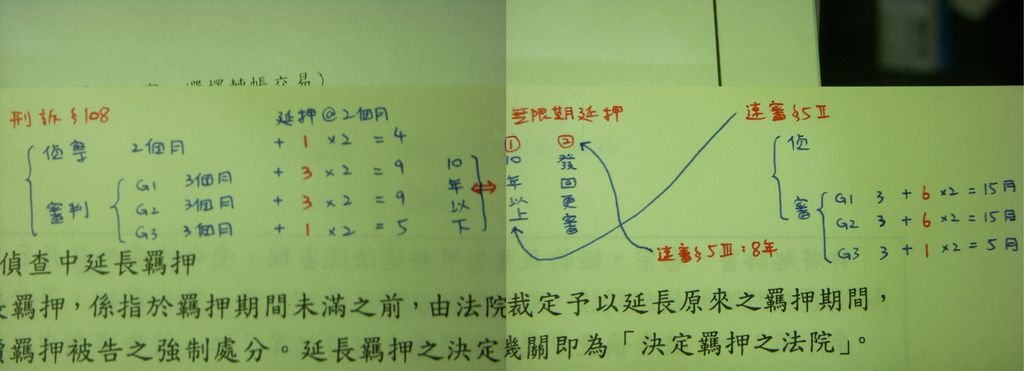 選擇轉帳交易）
刑訴§108
延押@2個月
偵辜 2個月 + 1 ×2 = 4
審判
G1 3個月 + 3 ×2 = 9
G2 3個月 + 3 ×2 = 9
G3 3個月 + 1 ×2 = 5
10年以下
無限期延押
① 10年以上
② 發回更審
速審§5Ⅲ:8年
速審§5Ⅱ
偵
審
G1 3 + 6 ×2 = 15月
G2 3 + 6 ×2 = 15月
G3 3 + 1 ×2 = 5月
偵查中延長羈押
長羈押，係指於羈押期間未滿之前，由法院裁定予以延長原來之羈押期間，
續羈押被告之強制處分。延長羈押之決定幾關即為「決定羈押之法院」。